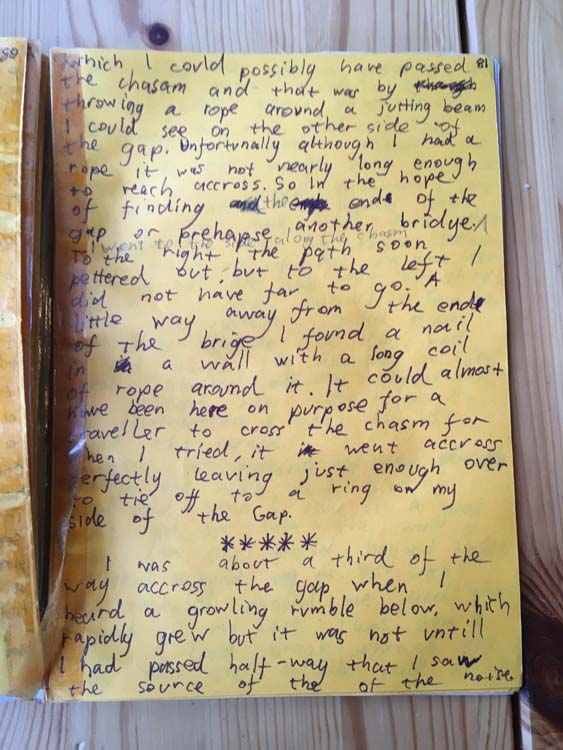 81
which I could possibly have passed
the chasam and that was by
throwing a rope around a jutting beam
I could see on the other side of
the gap. Unfortunally although I had a
rope it was not nearly long enough
to reach accross. So in the hope
of finding the end of the
gap or prehapse another bridye. I
I went to the side along the chasm
to the right the path soon
pettered out, but to the left I
did not have far to go. A
little way away from the ende
of the brige I found a nail
in a wall with a long coil
of rope around it. It could almost
have been here on purpose for a
traveller to cross the chasm for
when I tried, it went accross
perfectly leaving just enough over
to tie off to a ring on my
side of the Gap.
*****
I was about a third of the
way accross the gap when I
heard a growling rumble below, which
rapidly grew but it was not untill
I had passed half-way that I saw
the source of the of the noise.